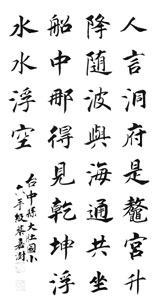 人言洞府是鼇宮升
降隨波與海通共坐
船中那得見乾坤浮
水水浮空
台中縣大肚國小
六年級蔡嘉澍